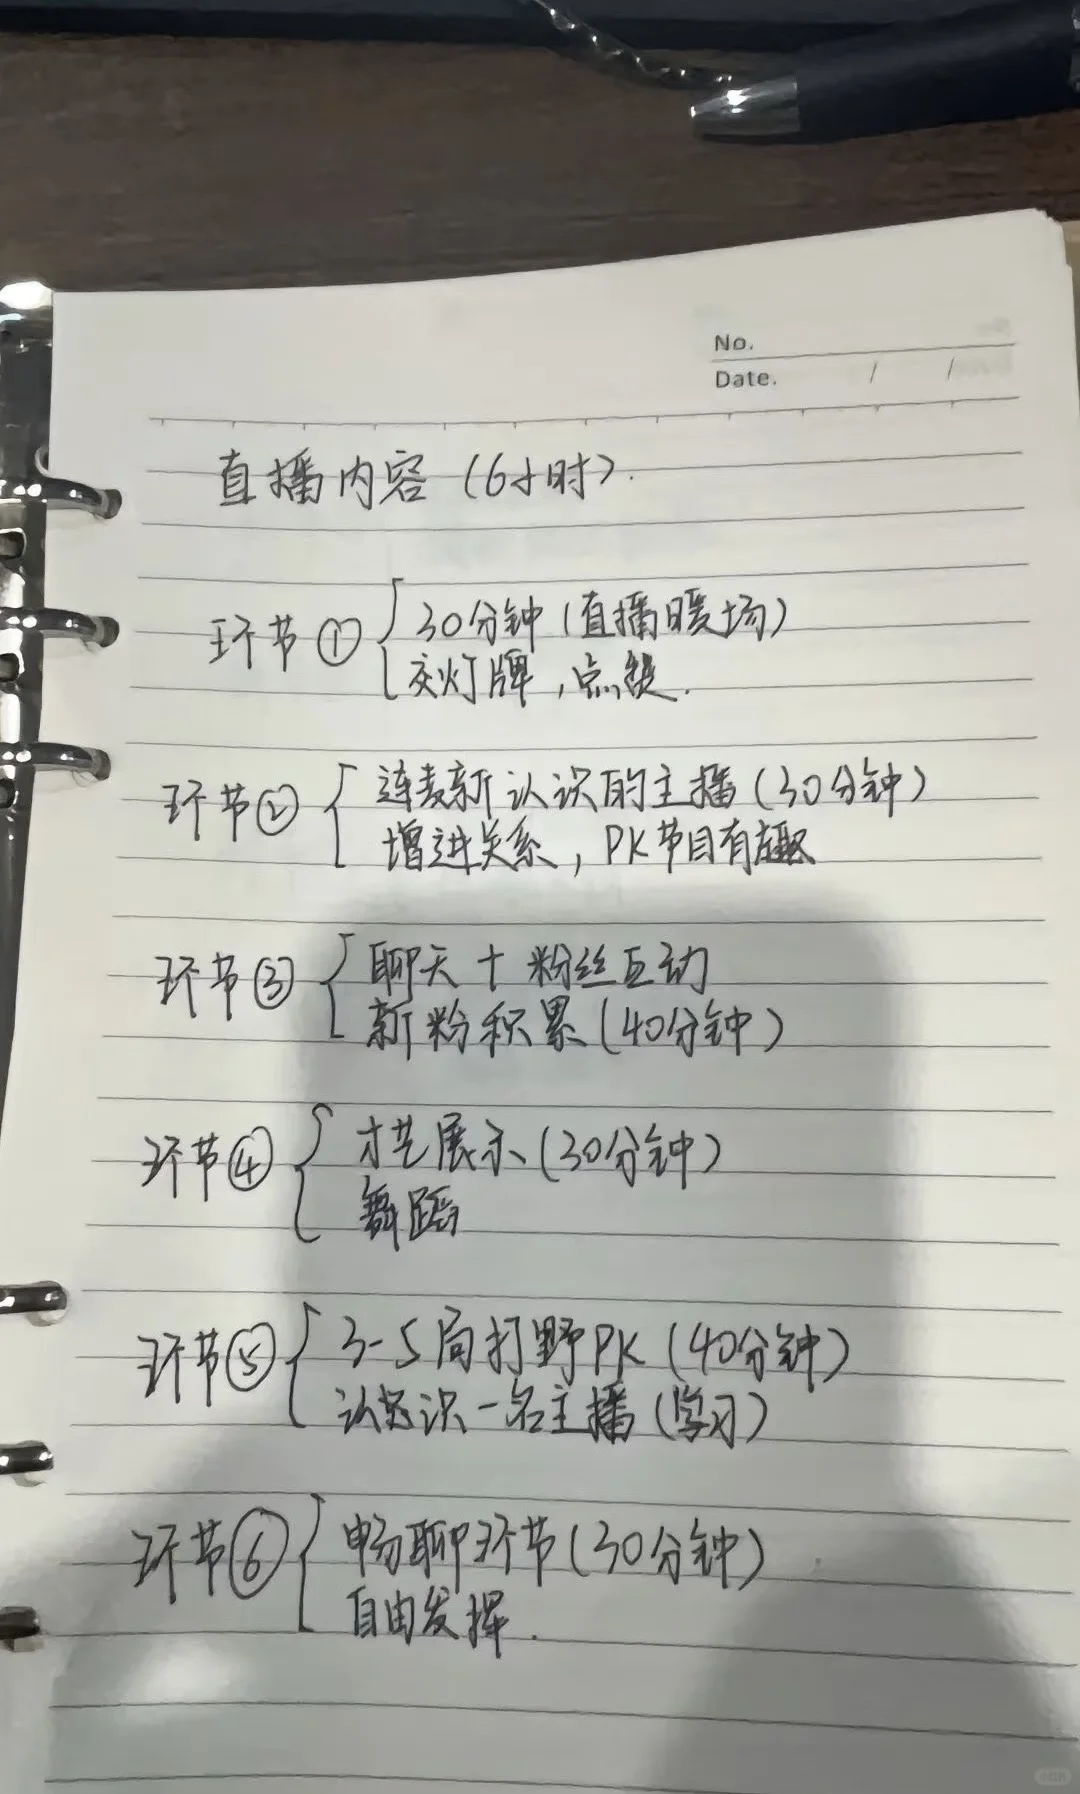 No.
Date. / /
直播内容（6小时）.
环节① 30分钟（直播暖场）
交灯牌，点
环节② 连麦新认识的主播（30分钟）
增进关系，PK节目有趣
环节③ 聊天＋粉丝互动
新粉积累（40分钟）
环节④ 才艺展示（30分钟）
舞蹈
环节⑤ 3-5局打野PK（40分钟）
认识一名主播（学习）
环节⑥ 畅聊环节（30分钟）
自由发挥.